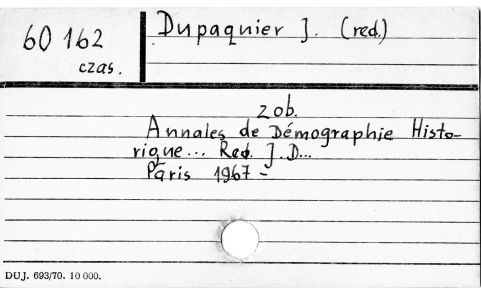 60 162
czas.
Dupaquier J. (red.)
zob.
Annales de Démographie Histo-
rique... Red. J.D...
Paris 1967 -
DUJ. 693/70. 10 000.